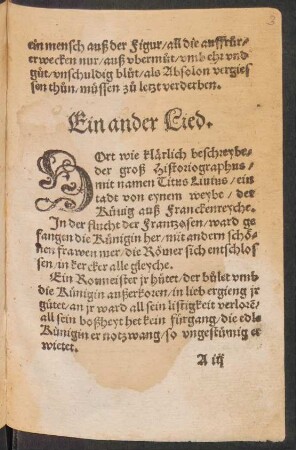 3
ein mensch auß der Figur/all die auffrür-
er wecken nur/auß vbermüt/vmb ehr vnd
güt/vnschuldig blüt/als Absolon vergies
sen thün/müssen zü letzt verderben.
Ein ander Lied.
HOrt wie klärlich beschreybe-
der groß Historiographus/
mit namen Titus Liuius/ein
tadt von eynem weybe/der
Künig auß Franckenreyche.
In der flucht der Frantzosen/ward ge
fangen die Künigin her/mit andern schö-
nen frawen mer/die Römer sich entschlos
sen/in kercker alle gleyche.
Ein Romeister jr hütet/der bület vmb
die Künigin außerkoren/in lieb ergieng jr
güte/an jr ward all sein listigkeit verlorē/
all sein boßheyt het kein fürgang/die edl
Künigin er notzwang/so vngestümig er
wietet.
A iij